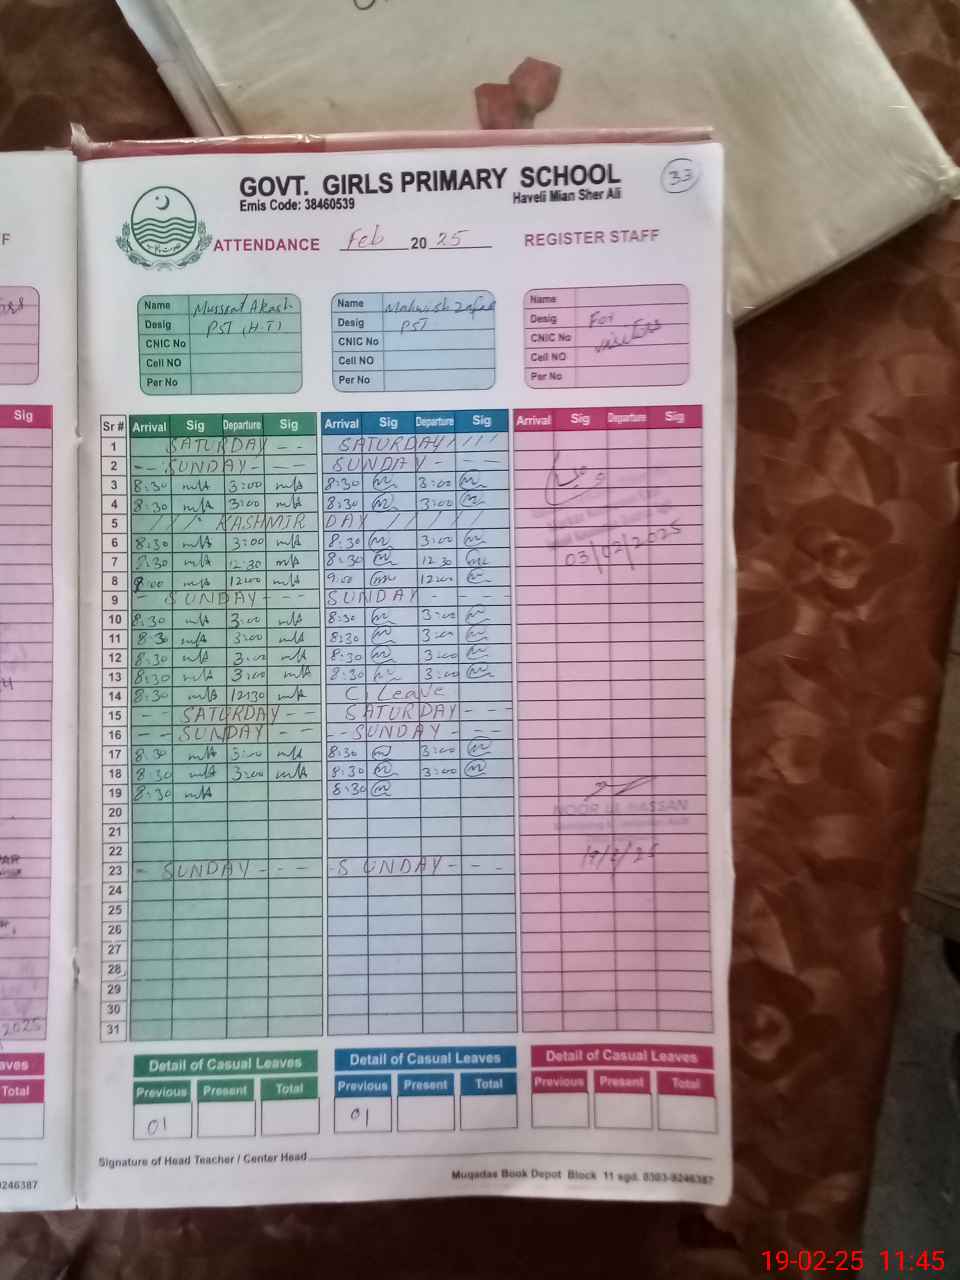 GOVT. GIRLS PRIMARY SCHOOL
Emis Code: 38460539 Haveli Mian Sher Ali
33
ATTENDANCE Feb 2025 REGISTER STAFF
Name Mussrat Akash Name Mahwish Zafar Name
Desig PST (H.T) Desig PST Desig For
CNIC No CNIC No CNIC No visitors
Cell NO Cell NO Cell NO
Per No Per No Per No
Sig
Sr # Arrival Sig Departure Sig Arrival Sig Departure Sig Arrival Sig Departure Sig
1 SATURDAY - - SATURDAY / / / /
2 - - SUNDAY - - - SUNDAY - - - -
3 8:30 mA 3:00 mA 8:30 m 3:00 m
4 8:30 mA 3:00 mA 8:30 m 3:00 m
5 / / / KASHMIR DAY / / / / /
6 8:30 mA 3:00 mA 8:30 m 3:00 m 03/02/2025
7 8:30 mA 12:30 mA 8:30 m 12:30 m
8 9:00 mA 12:00 mA 9:00 m 12:00 m
9 - SUNDAY - - - SUNDAY - - - -
10 8:30 mA 3:00 mA 8:30 m 3:00 m
11 8:30 mA 3:00 mA 8:30 m 3:00 m
12 8:30 mA 3:00 mA 8:30 m 3:00 m
13 8:30 mA 3:00 mA 8:30 m 3:00 m
14 8:30 mA 12:30 mA C, Leave
15 - - SATURDAY - - SATURDAY - - -
16 - - SUNDAY - - - - SUNDAY - - -
17 8:30 mA 3:00 mA 8:30 m 3:00 m
18 8:30 mA 3:00 mA 8:30 m 3:00 m
19 8:30 mA 8:30 m
20 NOOR UL HASSAN
21
22 19/2/25
23 - SUNDAY - - - - SUNDAY - - -
24
25
26
27
28
29
30
31
2025
Detail of Casual Leaves Detail of Casual Leaves Detail of Casual Leaves
Previous Present Total Previous Present Total Previous Present Total
Total
01 01
Signature of Head Teacher / Center Head
Muqadas Book Depot Block 11 sgd. 0303-9246387
9246387
19-02-25 11:45